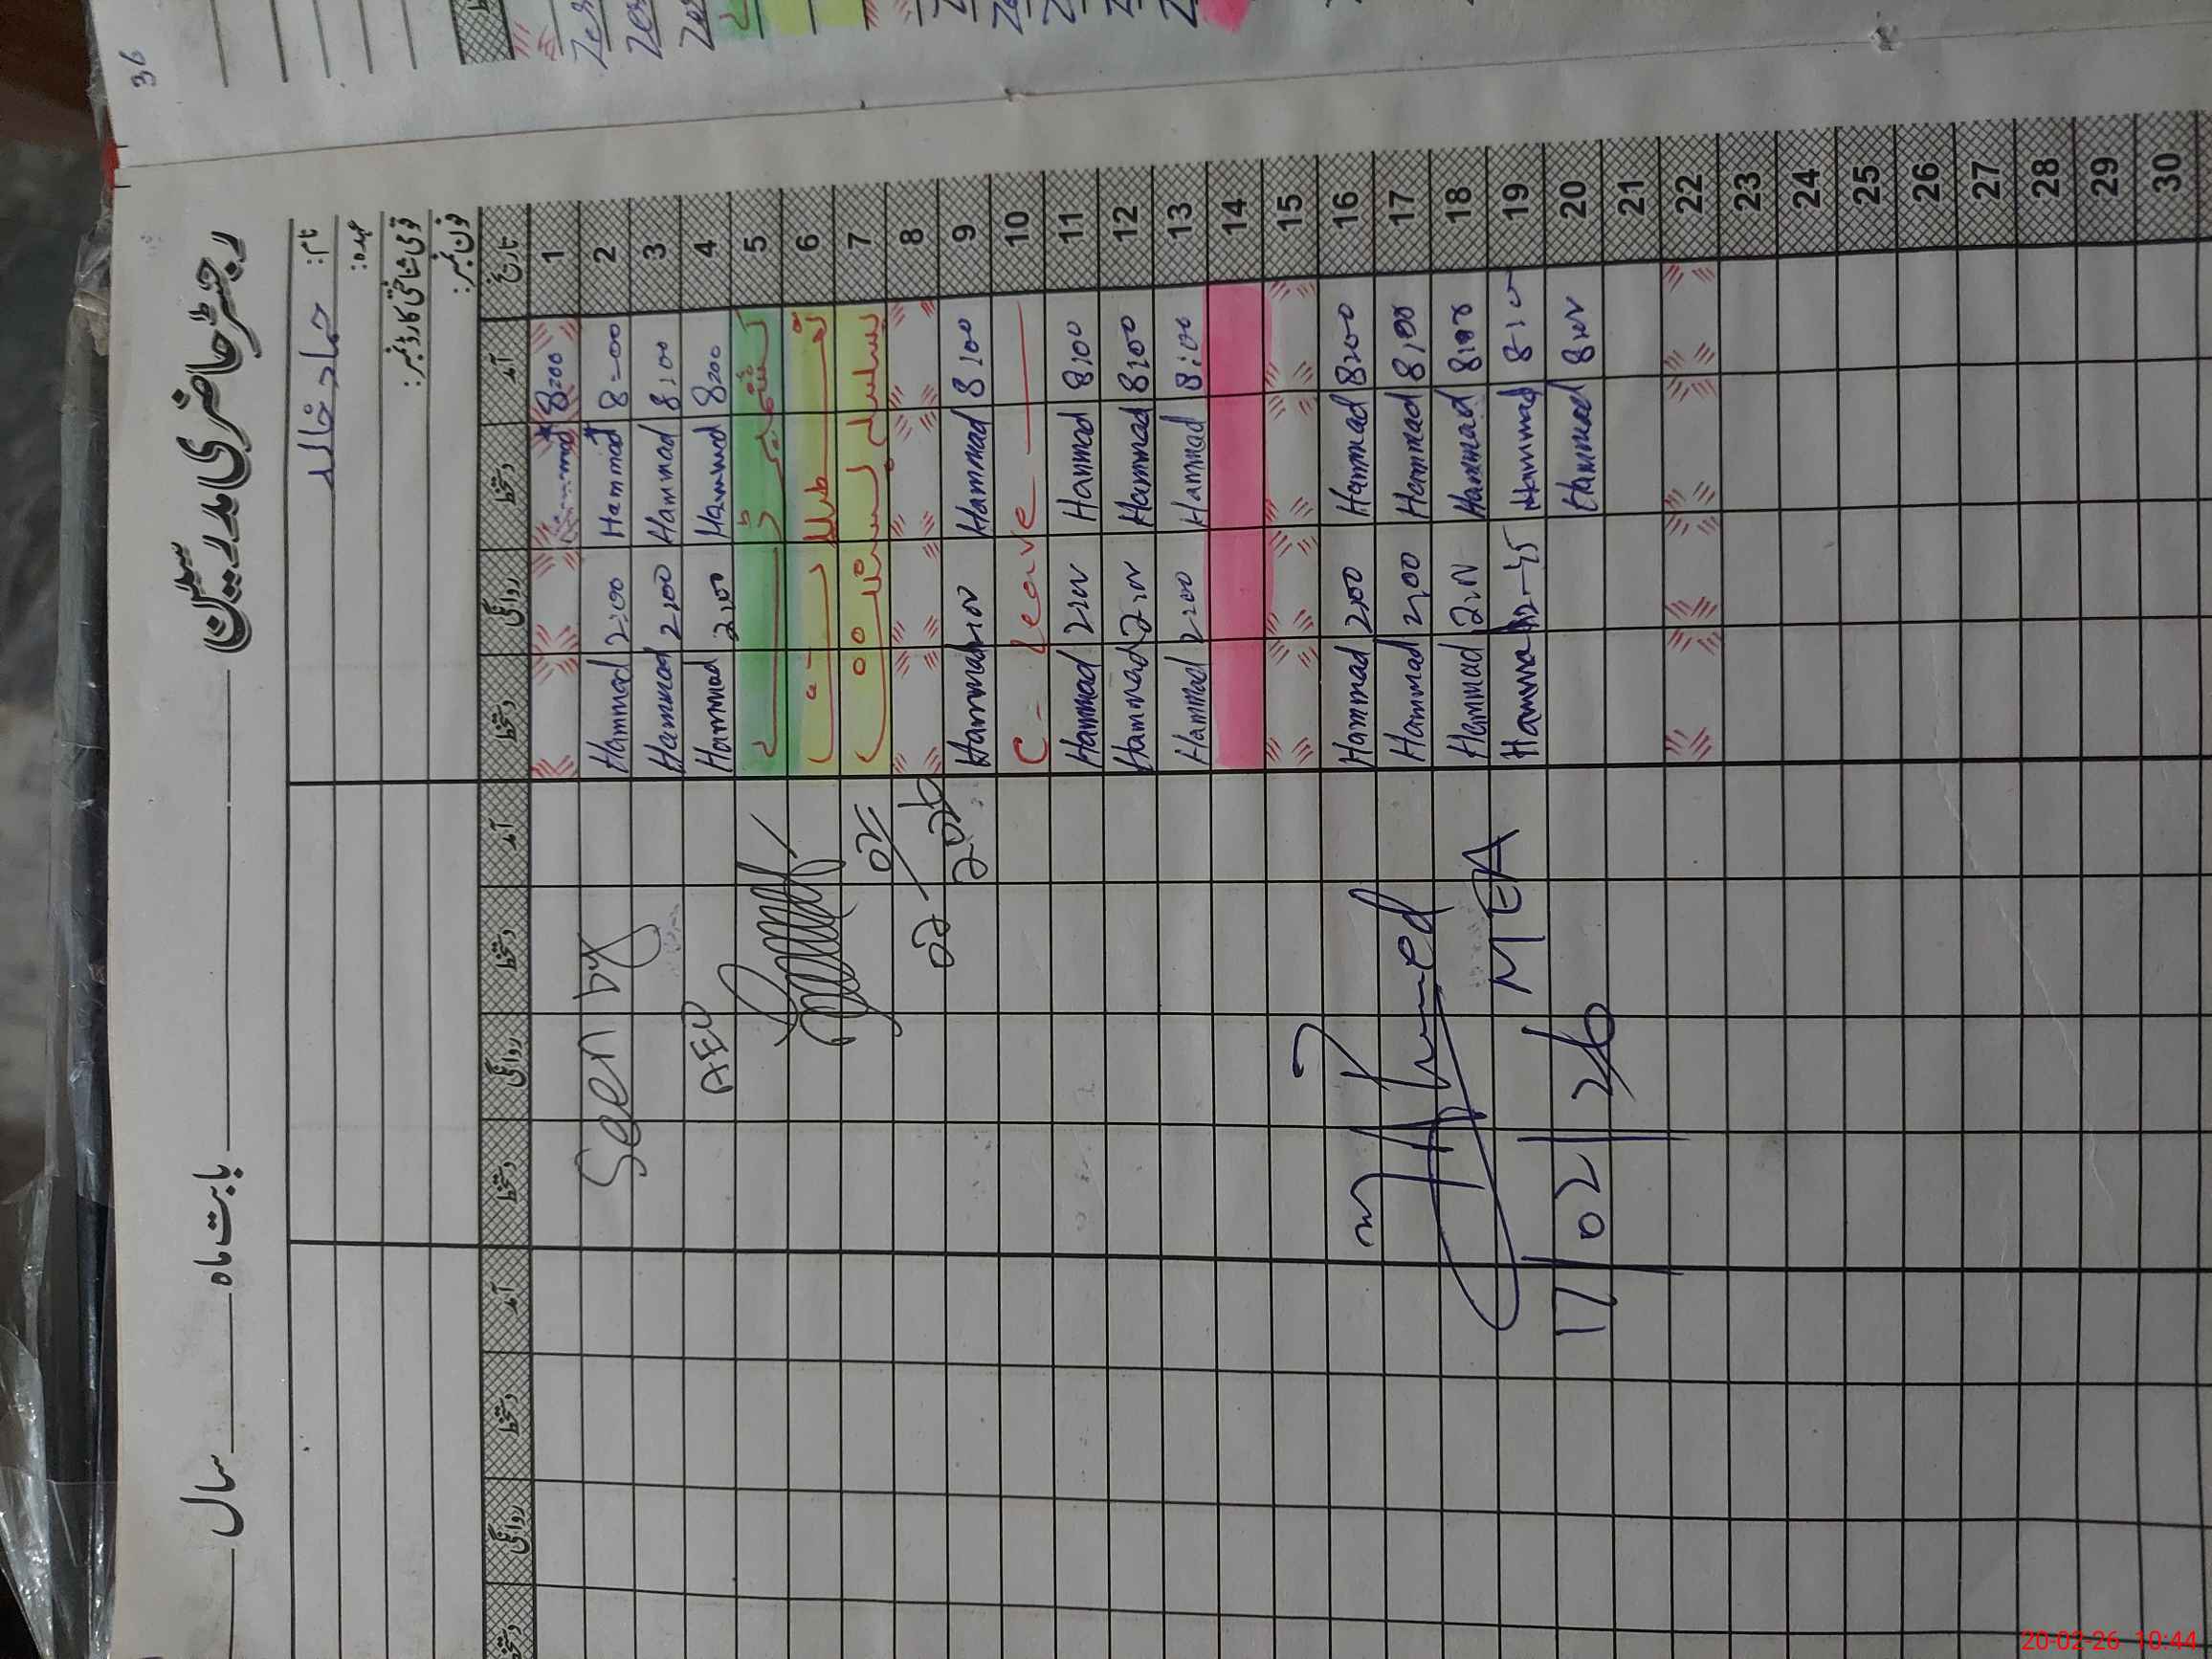 36
رجسٹر حاضری مدرسین
بابت ماہ سال
نام: حماد خالد
عہدہ:
قومی شناختی کارڈ نمبر:
فون نمبر:
تاریخ آمد دستخط روانگی دستخط آمد دستخط روانگی دستخط آمد دستخط روانگی دستخط
1 8:00
2 8-00 Hammad 2:00 Hammad
3 8:00 Hammad 2:00 Hammad
4 8:00 Hammad 2:00 Hammad
5 کشمیر ڈے
6
7
8
9 8:00 Hammad 2:00 Hammad
10 C - Leave
11 8:00 Hammad 2:00 Hammad
12 8:00 Hammad 2:00 Hammad
13 8:00 Hammad 2:00 Hammad
14
15
16 8:00 Hammad 2:00 Hammad
17 8:00 Hammad 2:00 Hammad
18 8:00 Hammad 2:00 Hammad
19 8:00 Hammad 12-45 Hammad
20 8:00 Hammad
21
22
23
24
25
26
27
28
29
30
Seen by
AEO
02-02-2026
Ahmed
MEA
17/02/26
20-02-26 10:44